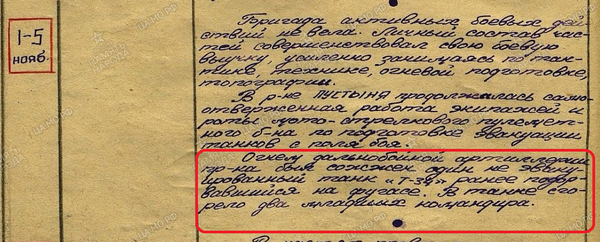 1-5
нояб.
Бригада активных боевых дей-
ствий не вела. Личный состав час-
тей совершенствовал свою боевую
выучку, усиленно занимаясь по так-
тике, технике, огневой подготовке,
топографии.
В р-не ПУСТЫНЯ продолжалась само-
отверженная работа экипажей и
роты мото-стрелкового пулемет-
ного б-на по подготовке эвакуации
танков с поля боя.
Огнем дальнобойной артиллерии
пр-ка был сожжен один не эваку-
ированный танк "Т-34", ранее подор-
вавшийся на фугасе. В танке сго-
рело два младших командира.